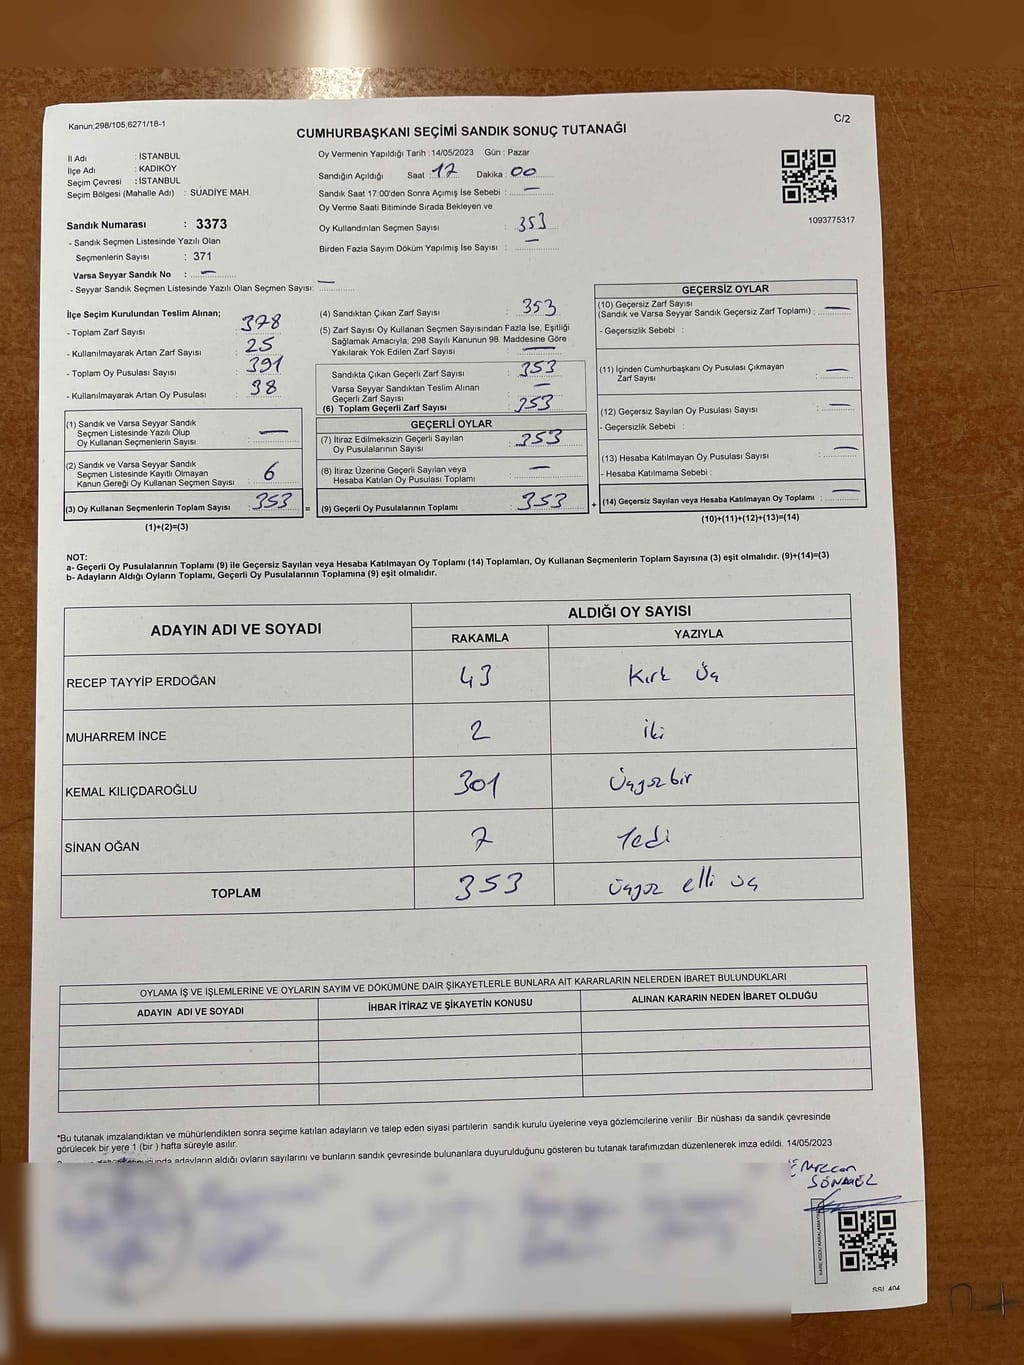 Kanun;298/105,6271/18-1
C/2
CUMHURBAŞKANI SEÇİMİ SANDIK SONUÇ TUTANAĞI
İl Adı : İSTANBUL
İlçe Adı : KADIKÖY
Seçim Çevresi : İSTANBUL
Seçim Bölgesi (Mahalle Adı) : SUADİYE MAH.
Sandık Numarası : 3373
- Sandık Seçmen Listesinde Yazılı Olan
Seçmenlerin Sayısı : 371
Varsa Seyyar Sandık No : —
- Seyyar Sandık Seçmen Listesinde Yazılı Olan Seçmen Sayısı: —
Oy Vermenin Yapıldığı Tarih : 14/05/2023 Gün : Pazar
Sandığın Açıldığı Saat 17 Dakika : 00
Sandık Saat 17:00'den Sonra Açımış İse Sebebi : —
Oy Verme Saati Bitiminde Sırada Bekleyen ve
Oy Kullandırılan Seçmen Sayısı : 353
Birden Fazla Sayım Döküm Yapılmış İse Sayısı : —
1093775317
İlçe Seçim Kurulundan Teslim Alınan;
- Toplam Zarf Sayısı : 378
- Kullanılmayarak Artan Zarf Sayısı : 25
- Toplam Oy Pusulası Sayısı : 391
- Kullanılmayarak Artan Oy Pusulası : 38
(1) Sandık ve Varsa Seyyar Sandık
Seçmen Listesinde Yazılı Olup
Oy Kullanan Seçmenlerin Sayısı : —
(2) Sandık ve Varsa Seyyar Sandık
Seçmen Listesinde Kayıtlı Olmayan
Kanun Gereği Oy Kullanan Seçmen Sayısı : 6
(3) Oy Kullanan Seçmenlerin Toplam Sayısı : 353
(1)+(2)=(3)
(4) Sandıktan Çıkan Zarf Sayısı : 353
(5) Zarf Sayısı Oy Kullanan Seçmen Sayısından Fazla İse, Eşitliği
Sağlamak Amacıyla; 298 Sayılı Kanunun 98. Maddesine Göre
Yakılarak Yok Edilen Zarf Sayısı : —
Sandıkta Çıkan Geçerli Zarf Sayısı : 353
Varsa Seyyar Sandıktan Teslim Alınan
Geçerli Zarf Sayısı : —
(6) Toplam Geçerli Zarf Sayısı : 353
GEÇERLİ OYLAR
(7) İtiraz Edilmeksizin Geçerli Sayılan
Oy Pusulalarının Sayısı : 353
(8) İtiraz Üzerine Geçerli Sayılan veya
Hesaba Katılan Oy Pusulası Toplamı : —
(9) Geçerli Oy Pusulalarının Toplamı : 353
GEÇERSİZ OYLAR
(10) Geçersiz Zarf Sayısı
(Sandık ve Varsa Seyyar Sandık Geçersiz Zarf Toplamı) : —
- Geçersizlik Sebebi :
(11) İçinden Cumhurbaşkanı Oy Pusulası Çıkmayan
Zarf Sayısı : —
(12) Geçersiz Sayılan Oy Pusulası Sayısı : —
- Geçersizlik Sebebi :
(13) Hesaba Katılmayan Oy Pusulası Sayısı : —
- Hesaba Katılmama Sebebi :
= + (14) Geçersiz Sayılan veya Hesaba Katılmayan Oy Toplamı : —
(10)+(11)+(12)+(13)=(14)
NOT:
a- Geçerli Oy Pusulalarının Toplamı (9) ile Geçersiz Sayılan veya Hesaba Katılmayan Oy Toplamı (14) Toplamları, Oy Kullanan Seçmenlerin Toplam Sayısına (3) eşit olmalıdır. (9)+(14)=(3)
b- Adayların Aldığı Oyların Toplamı, Geçerli Oy Pusulalarının Toplamına (9) eşit olmalıdır.
ADAYIN ADI VE SOYADI
ALDIĞI OY SAYISI
RAKAMLA YAZIYLA
RECEP TAYYİP ERDOĞAN 43 Kırk Üç
MUHARREM İNCE 2 İki
KEMAL KILIÇDAROĞLU 301 Üçyüz bir
SİNAN OĞAN 7 Yedi
TOPLAM 353 Üçyüz elli üç
OYLAMA İŞ VE İŞLEMLERİNE VE OYLARIN SAYIM VE DÖKÜMÜNE DAİR ŞİKAYETLERLE BUNLARA AİT KARARLARIN NELERDEN İBARET BULUNDUKLARI
ADAYIN ADI VE SOYADI İHBAR İTİRAZ VE ŞİKAYETİN KONUSU ALINAN KARARIN NEDEN İBARET OLDUĞU
*Bu tutanak imzalandıktan ve mühürlendikten sonra seçime katılan adayların ve talep eden siyasi partilerin sandık kurulu üyelerine veya gözlemcilerine verilir. Bir nüshası da sandık çevresinde
görülecek bir yere 1 (bir) hafta süreyle asılır.
adayların aldığı oyların sayılarını ve bunların sandık çevresinde bulunanlara duyurulduğunu gösteren bu tutanak tarafımızdan düzenlenerek imza edildi. 14/05/2023
SÖNMEZ
KARE KODU KARALAMAYIN